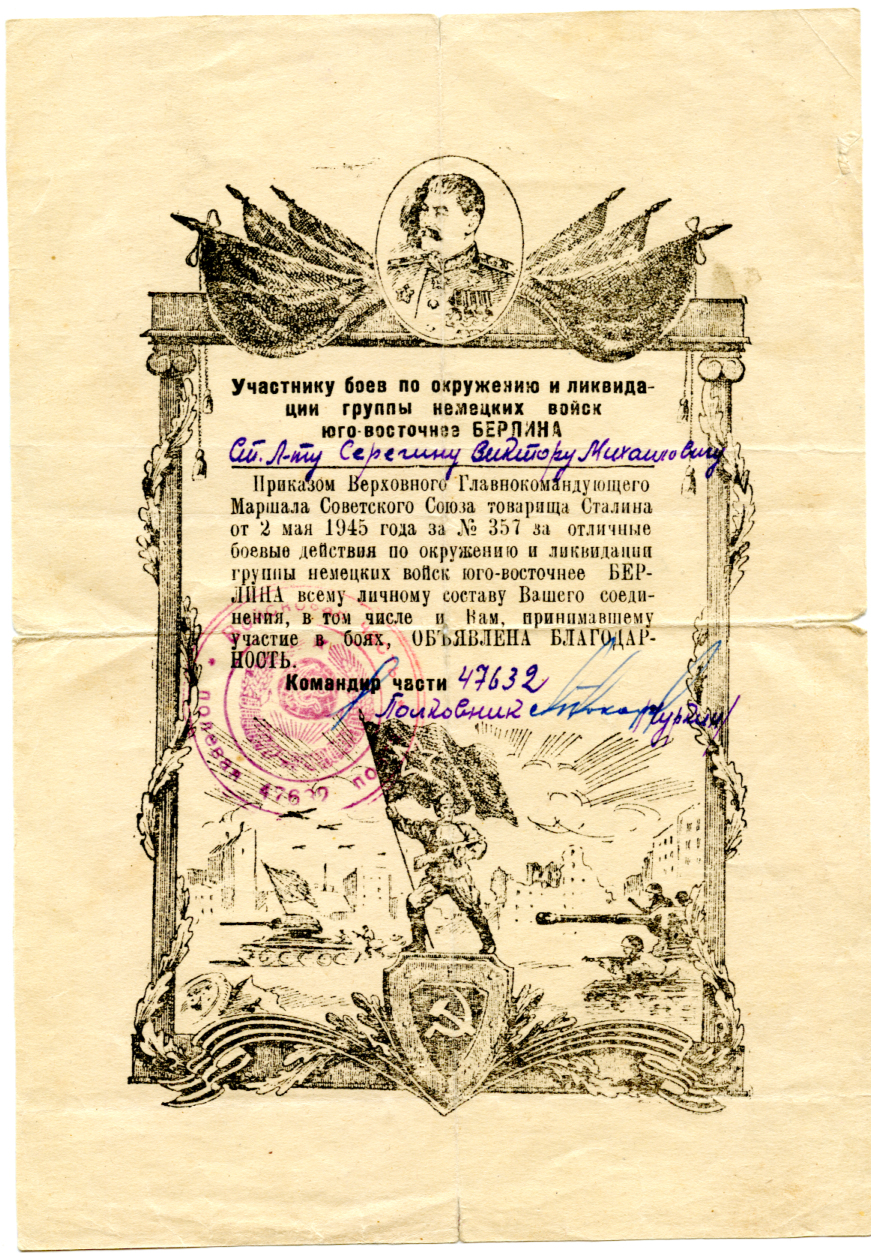 Участнику боев по окружению и ликвида-
ции группы немецких войск
юго-восточнее БЕРЛИНА
Ст. Л-ту Серегину Виктору Михайловичу
Приказом Верховного Главнокомандующего
Маршала Советского Союза товарища Сталина
от 2 мая 1945 года за № 357 за отличные
боевые действия по окружению и ликвидации
группы немецких войск юго-восточнее БЕР-
ЛИНА всему личному составу Вашего соеди-
нения, в том числе и Вам, принимавшему
участие в боях, ОБЪЯВЛЕНА БЛАГОДАР-
НОСТЬ.
Командир части 47632
Полковник
полевая
47632